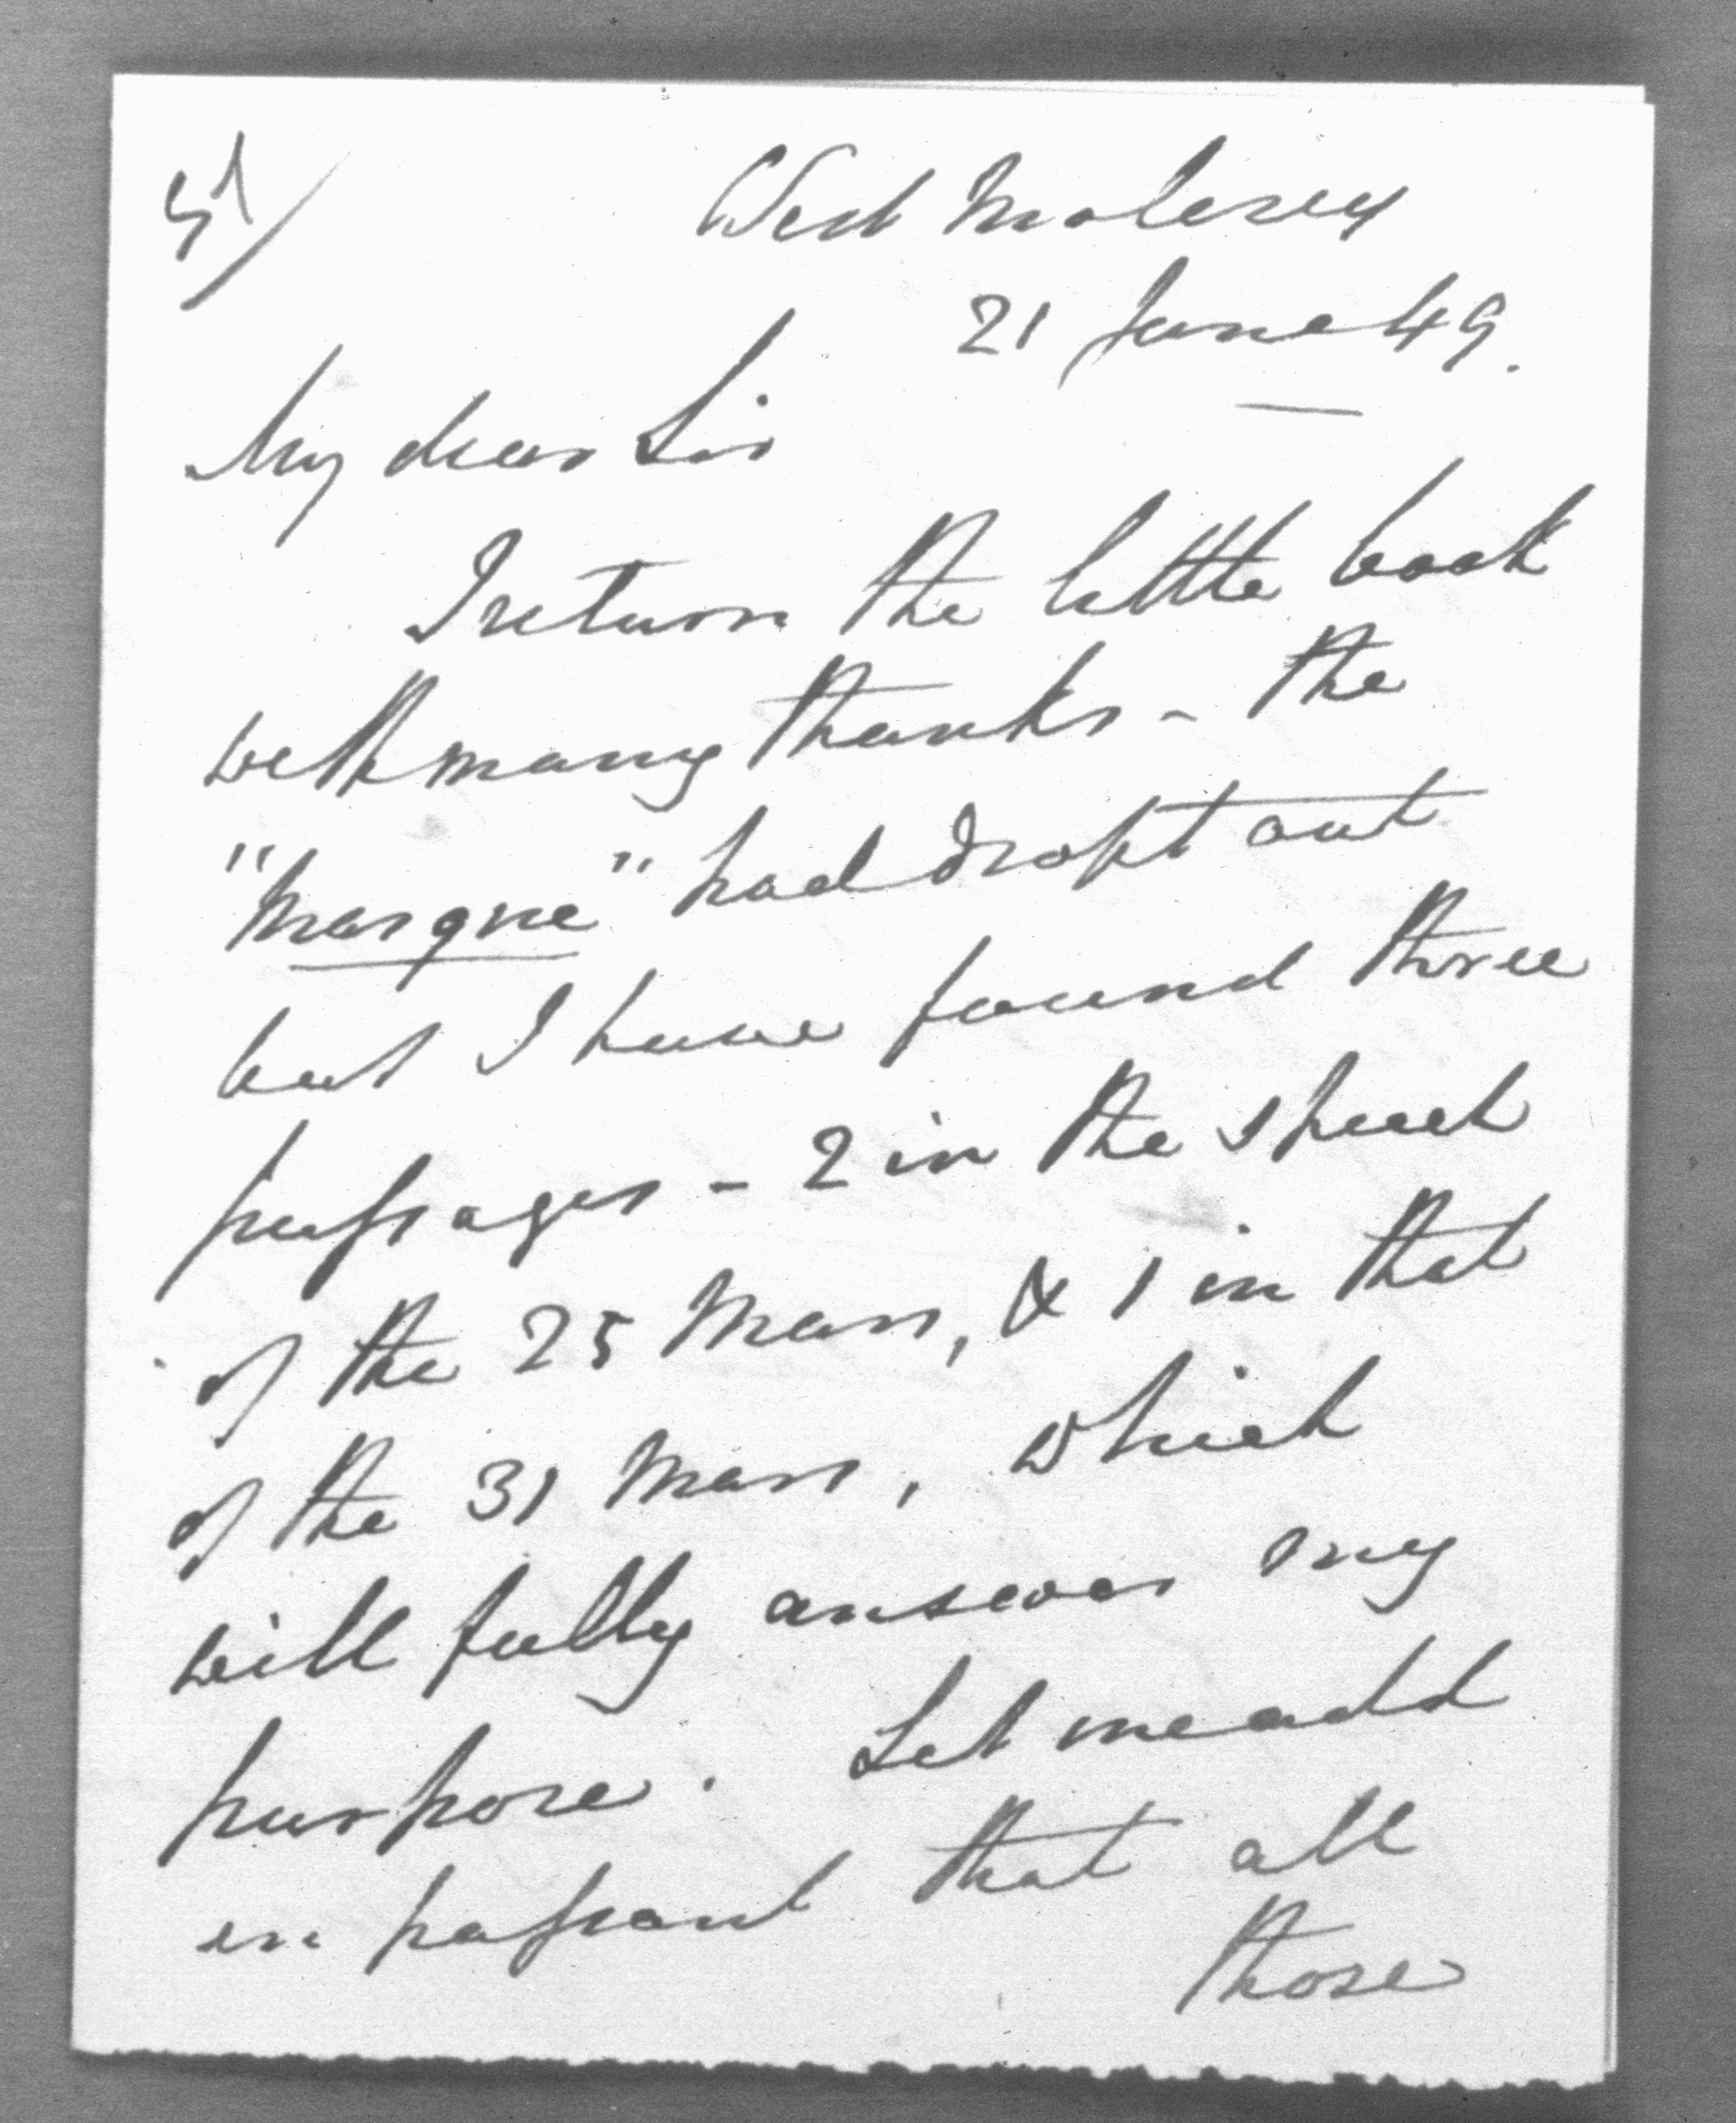 West Molesey
21 June 49.
My dear Sir
I return the little book
with many thanks - the
"Marque" had dropt out
but I have found three
passages - 2 in the speech
of the 25 Mars, & 1 in that
of the 31 Mars, which
will fully answer my
purpose. Let me add
en passant that all
those